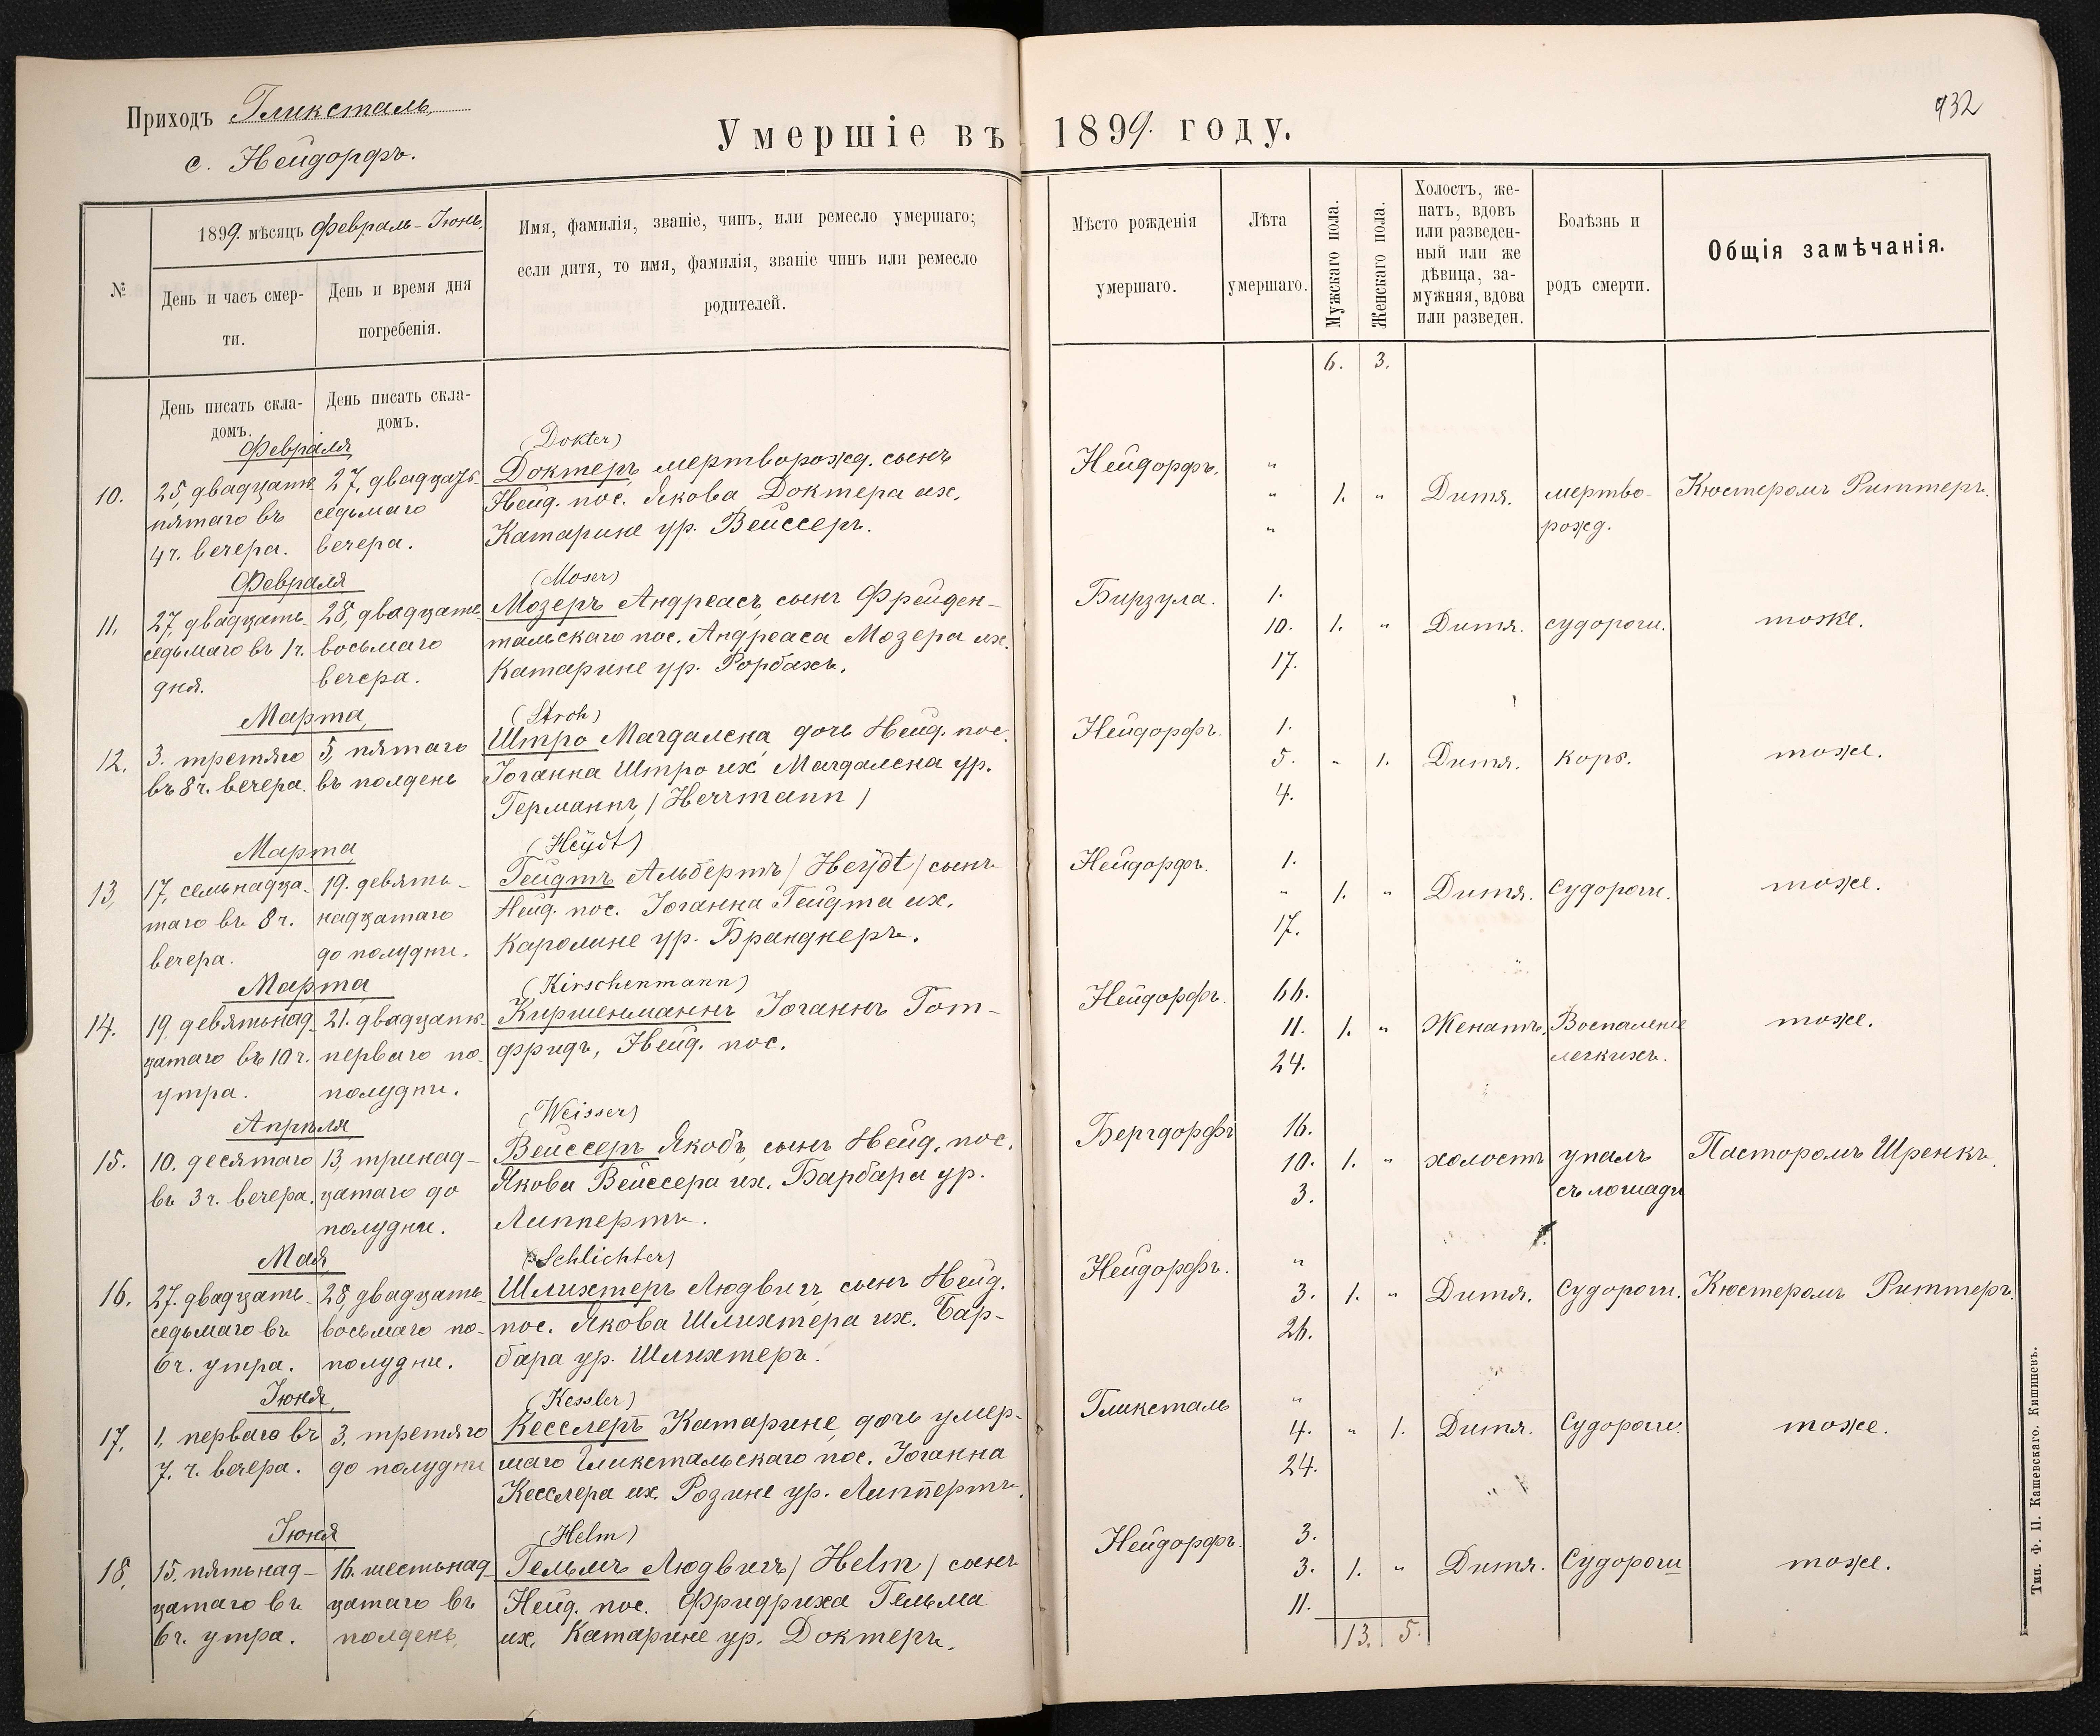 Приходъ Гликсталь
с. Нейдорфъ.
Умершіе въ 1899. году.
932
№
1899. мѣсяцъ Февраль-Іюнь.
День и часъ смер-
ти.
День и время дня
погребенія.
Имя, фамилія, званіе, чинъ, или ремесло умершаго;
если дитя, то имя, фамилія, званіе чинъ или ремесло
родителей.
Мѣсто рожденія
умершаго.
Лѣта
умершаго.
Мужскаго пола.
Женскаго пола.
Холостъ, же-
натъ, вдовъ
или разведен-
ный или же
дѣвица, за-
мужняя, вдова
или разведен.
Болѣзнь и
родъ смерти.
Общія замѣчанія.
6. 3.
День писать скла-
домъ.
День писать скла-
домъ.
Февраля
10.
25, двадцать
пятаго въ
4 ч. вечера.
27, двадцать
седьмаго
вечера.
(Dokter)
Доктеръ, мертворожд. сынъ
Нейд. пос. Якова Доктера иж.
Катарине ур. Вейссеръ.
Нейдорфъ.
"
"
"
1. "
Дитя.
мертво-
рожд.
Кюстеромъ Риттеръ.
Февраля
11.
27, двадцать
седьмаго въ 1 ч.
дня.
28, двадцать
восьмаго
вечера.
(Moser)
Мозеръ Андреасъ, сынъ Фрейден-
тальскаго пос. Андреаса Мозера иж.
Катарине ур. Рорбахъ.
Бирзула.
1.
10.
17.
1. "
Дитя.
судороги.
тоже.
Марта
12.
3. третяго
въ 8 ч. вечера.
5, пятаго
въ полдень
(Stroh)
Штро Магдалена, дочь Нейд. пос.
Іоганна Штро иж. Магдалена ур.
Германнъ / Herrmann /
Нейдорфъ.
1.
5.
4.
" 1.
Дитя.
корь.
тоже.
Марта
13.
17, семьнадца-
таго въ 8 ч.
вечера.
19. девять-
надцатаго
до полудни.
(Heÿdt)
Гейдтъ Альбертъ / Heÿdt / сынъ
Нейд. пос. Іоганна Гейдта иж.
Каролине ур. Бранднеръ.
Нейдорфъ.
1.
"
17.
1. "
Дитя.
Судороги.
тоже.
Марта
14.
19, девятьнад-
цатаго въ 10 ч.
утра.
21. двадцать
перваго по-
полудни.
(Kirschenmann)
Киршенманнъ Іоганнъ Гот-
фридъ, Нейд. пос.
Нейдорфъ.
66.
11.
24.
1. "
Женатъ.
Воспаленіе
легкихъ.
тоже.
Апрѣля
15.
10. десятаго
въ 3 ч. вечера.
13, тринад-
цатаго до
полудни.
(Weisser)
Вейссеръ Якобъ, сынъ Нейд. пос.
Якова Вейссера иж. Барбара ур.
Липпертъ.
Бергдорфъ
16.
10.
3.
1. "
холостъ
упалъ
съ лошади
Пасторомъ Шренкъ.
Мая
16.
27. двадцать
седьмаго въ
6 ч. утра.
28, двадцать
восьмаго по-
полудни.
(Schlichter)
Шлихтеръ Людвигъ, сынъ Нейд.
пос. Якова Шлихтера иж. Бар-
бара ур. Шлихтеръ.
Нейдорфъ.
"
3.
26.
1. "
Дитя.
Судороги.
Кюстеромъ Риттеръ.
Іюня
17.
1, перваго въ
7. ч. вечера.
3, третяго
до полудни
(Kessler)
Кесслеръ Катарине, дочь умер-
шаго Гликстальскаго пос. Іоганна
Кесслера иж. Розине ур. Липпертъ.
Гликсталь
"
4.
24.
" 1.
Дитя.
Судороги.
тоже.
Іюня
18.
15. пятьнад-
цатаго въ
6 ч. утра.
16. шестьнад
цатаго въ
полдень,
(Helm)
Гельмъ Людвигъ / Helm / сынъ
Нейд. пос. Фридриха Гельма
иж. Катарине ур. Доктеръ.
Нейдорфъ.
3.
3.
11.
1. "
Дитя.
Судороги
тоже.
13. 5.
Тип. Ф. П. Кашевскаго. Кишиневъ.